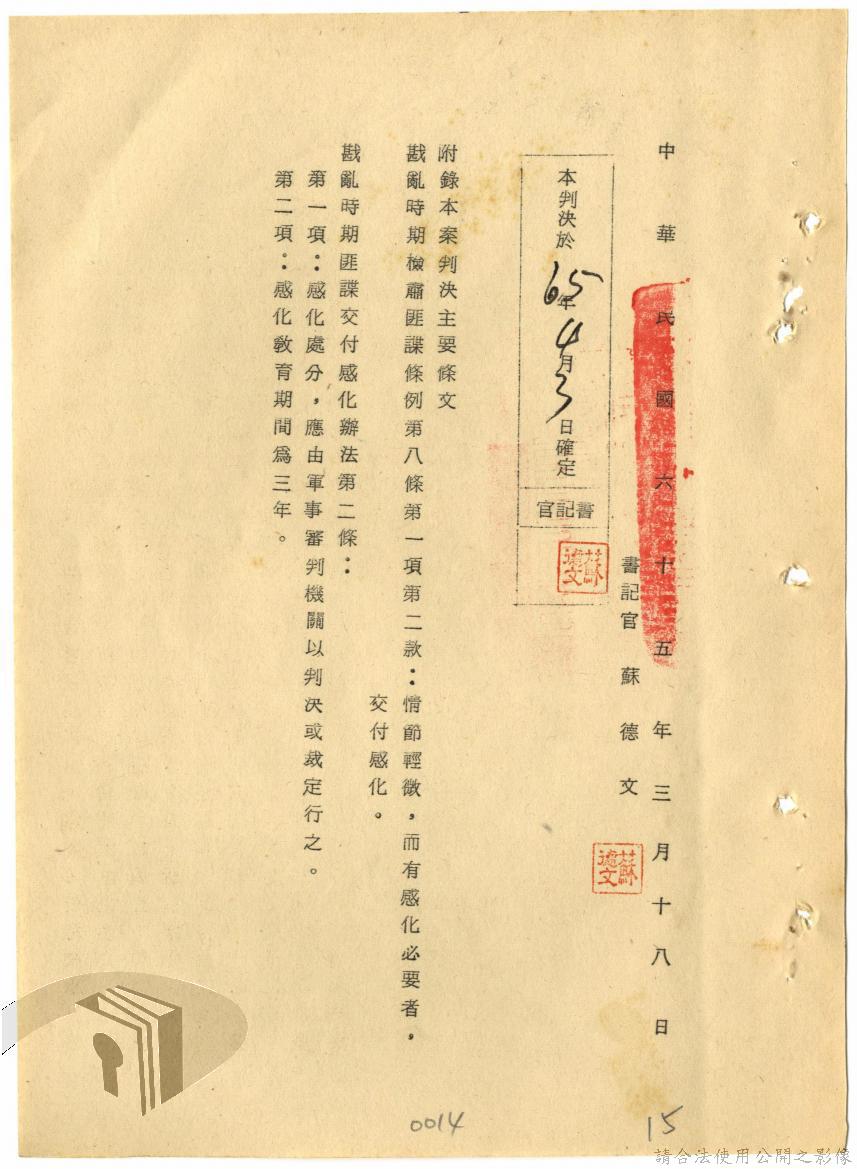 中華民國六十五年三月十八日
書記官 蘇德文
蘇德文
本判決於65年4月3日確定
書記官
蘇德文
附錄本案判決主要條文
戡亂時期檢肅匪諜條例第八條第一項第二款：情節輕微，而有感化必要者，
交付感化。
戡亂時期匪諜交付感化辦法第二條：
第一項：感化處分，應由軍事審判機關以判決或裁定行之。
第二項：感化教育期間為三年。
0014
15
請合法使用公開之影像